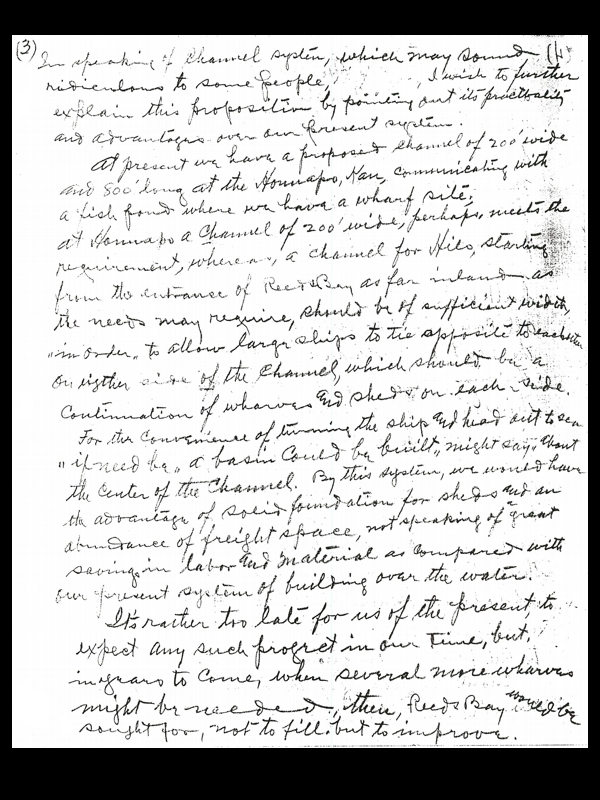 (3)
In speaking of Channel system, which may sound
ridiculous to some people, , I wish to further
explain this proposition by pointing out its practicality
and advantages over our present system.
At present we have a proposed channel of 200' wide
and 800' long at the Honuapo, Kau, communicating with
a fish pond where we have a wharf site;
at Honuapo a Channel of 200' wide, perhaps, meets the
requirement, whereas, a channel for Hilo, starting
from the entrance of Reeds Bay as far inland as
the needs may require, should be of sufficient width,
"in order" to allow large ships to tie opposite to each other
on eigther side of the Channel, which should be a
continuation of wharves and sheds on each side.
For the convenience of turning the ship and head out to sea
"if need be" a basin could be built, "might say" about
the center of the Channel. By this system, we would have
the advantage of solid foundation for sheds and an
abundance of freight space, not speaking of great
savings in labor and material as compared with
our present system of building over the water.
It's rather too late for us of the present to
expect any such progret in our time, but,
in years to come, when several more wharves
might be needed, then, Reeds Bay would be
sought for, not to fill but to improve.